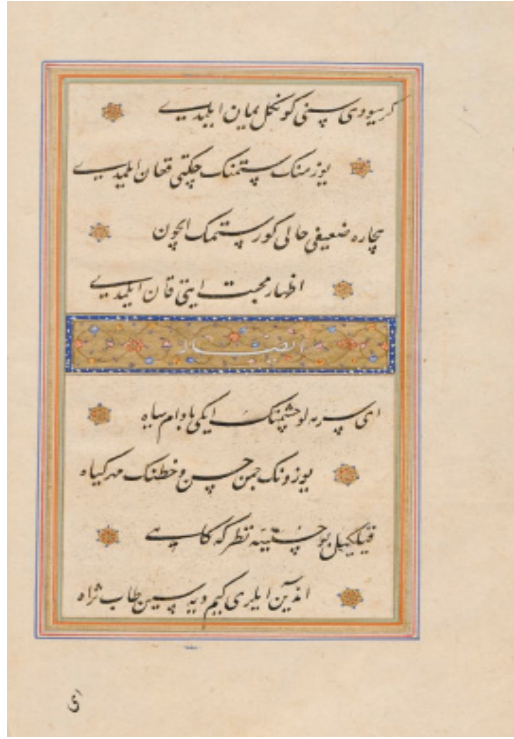 گر سیودی سنی کونکل یمان ایلمیدی
یوز منک ستمنک چکتی فغان ایلمیدی
بیچاره ضعیفی حالی کورستمک ایچون
اظهار محبت ایتی قان ایلمیدی
ایضا له
ای سرمه لو چشمنک ایکی بادام سیاه
یوزونک چمن حسن و خطنک مهر کیاه
قیلکیل بو خسته‌یه نظر که کاهی
اندین ایلری کیم دیه سین طاب ثراه